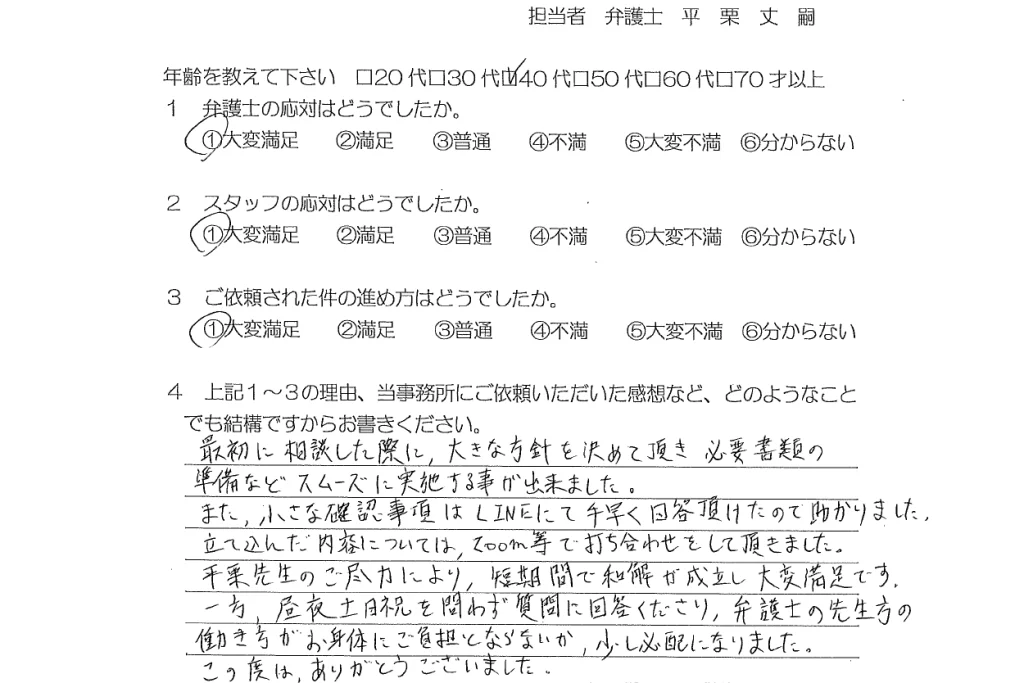 担当者 弁護士 平 栗 丈 嗣
年齢を教えて下さい □20代□30代☑40代□50代□60代□70才以上
1 弁護士の応対はどうでしたか。
①大変満足 ②満足 ③普通 ④不満 ⑤大変不満 ⑥分からない
2 スタッフの応対はどうでしたか。
①大変満足 ②満足 ③普通 ④不満 ⑤大変不満 ⑥分からない
3 ご依頼された件の進め方はどうでしたか。
①大変満足 ②満足 ③普通 ④不満 ⑤大変不満 ⑥分からない
4 上記1~3の理由、当事務所にご依頼いただいた感想など、どのようなこと
でも結構ですからお書きください。
最初に相談した際に、大きな方針を決めて頂き 必要書類の
準備など スムーズに実施する事が出来ました。
また、小さな確認事項はLINEにて手早く回答頂けたので助かりました。
立て込んだ内容については、zoom等で打ち合わせをして頂きました。
平栗先生のご尽力により、短期間で和解が成立し大変満足です。
一方、昼夜土日祝を問わず質問に回答くださり、弁護士の先生方の
働き方がお身体にご負担とならないか、少し心配になりました。
この度は、ありがとうございました。